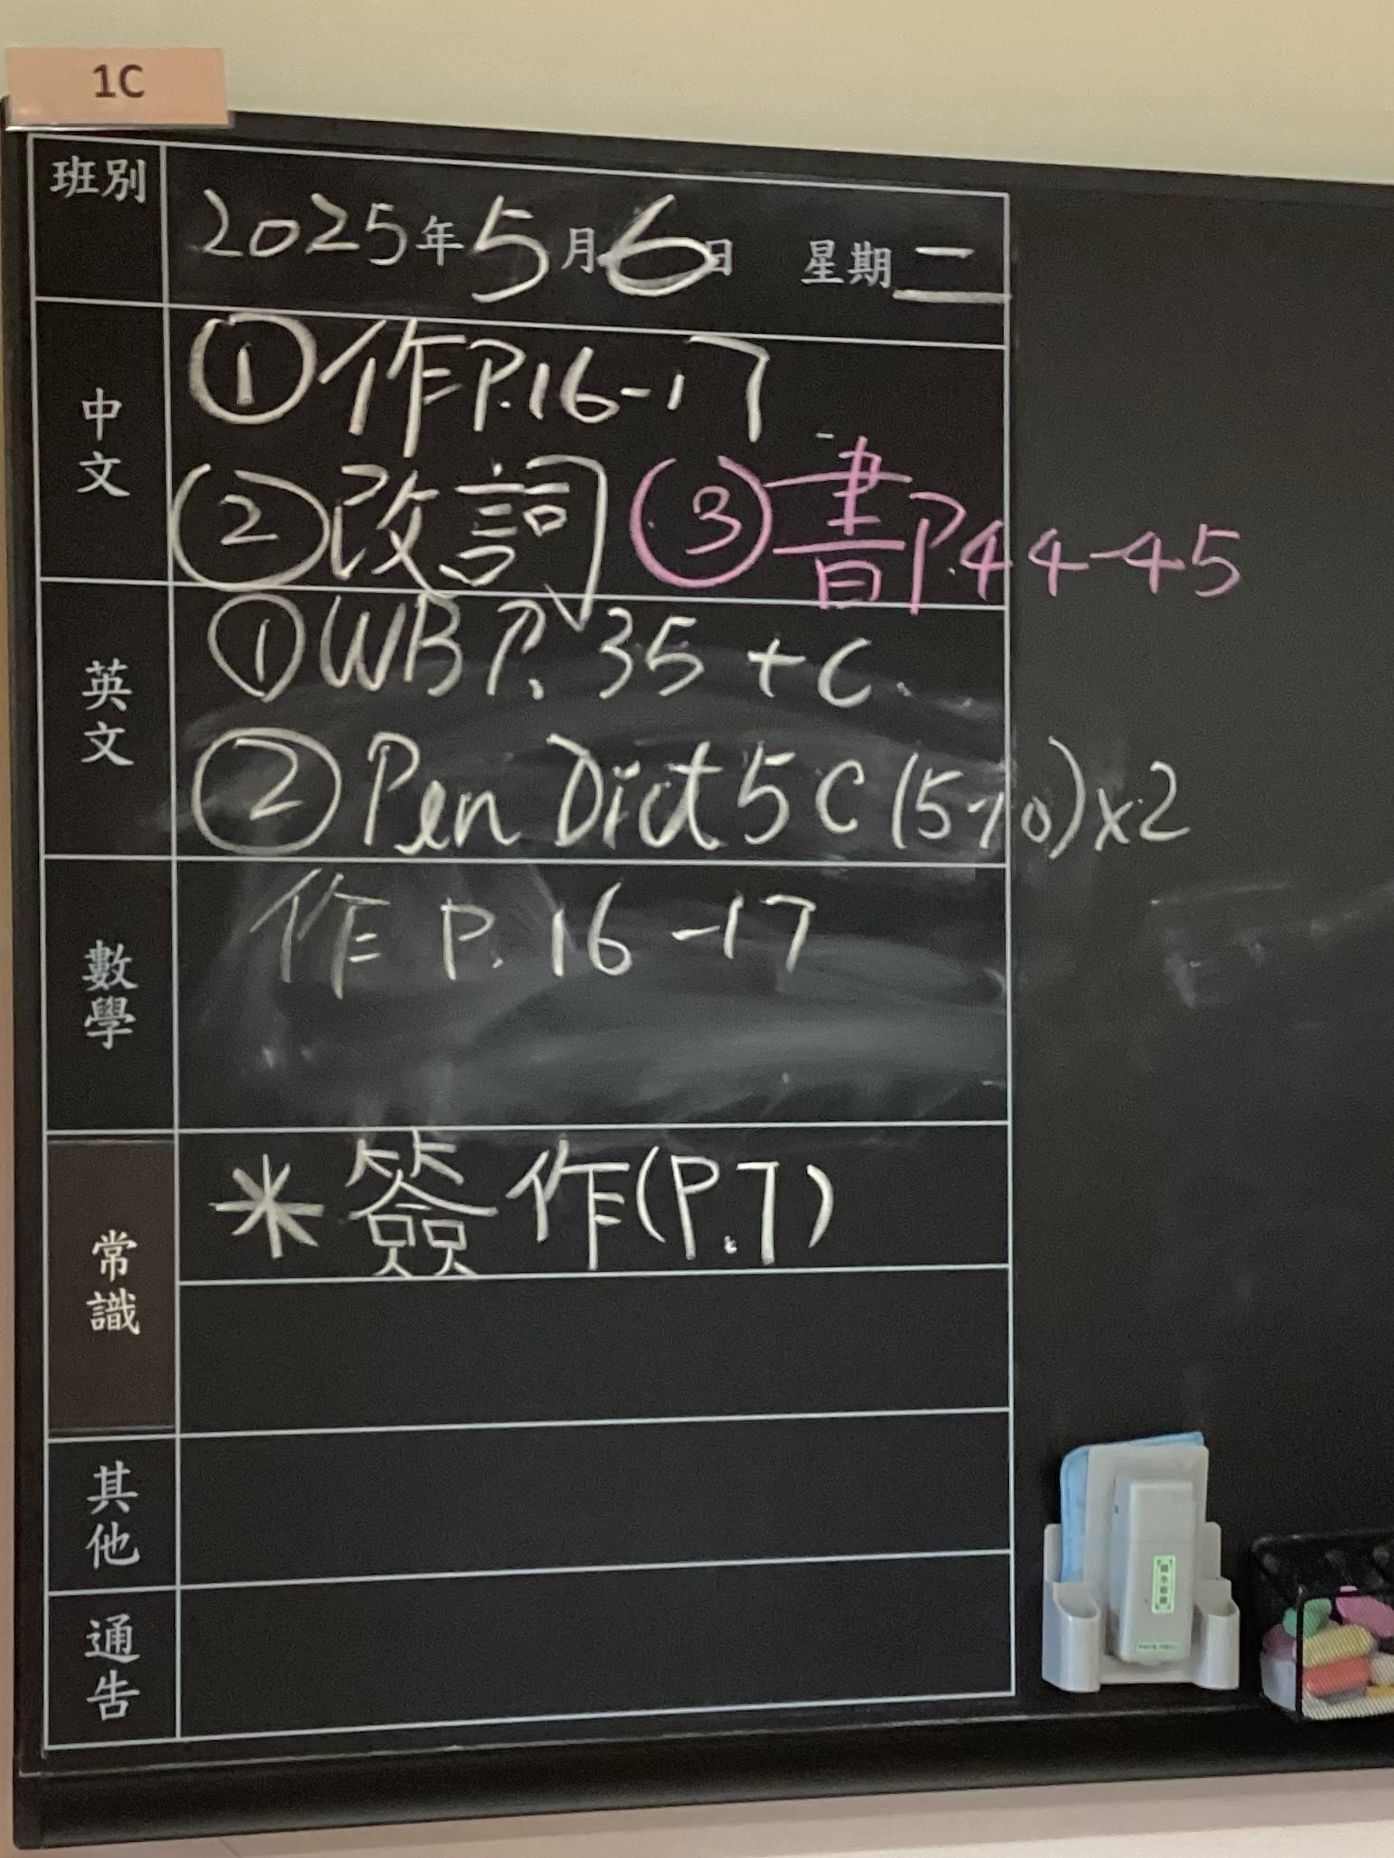 1C
班別
2025年5月6日 星期二
中文
①作P.16-17
②改詞 ③書P.44-45
英文
①WB P. 35 + C.
②Pen Dict 5C (5-10)x2
數學
作 P. 16-17
常識
＊簽作(P.7)
其他
通告